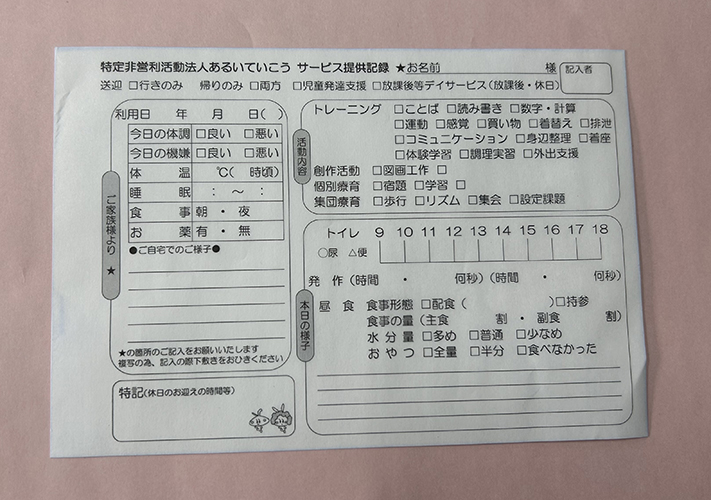 特定非営利活動法人あるいていこう サービス提供記録 ★お名前 様 記入者
送迎 □行きのみ 帰りのみ □両方 □児童発達支援 □放課後等デイサービス（放課後・休日）
ご家族様より ★
利用日 年 月 日( )
今日の体調 □良い □悪い
今日の機嫌 □良い □悪い
体 温 ℃( 時頃)
睡 眠 : 〜 :
食 事 朝 ・ 夜
お 薬 有 ・ 無
●ご自宅でのご様子●
★の箇所のご記入をお願いいたします
複写の為、記入の際下敷きをおひきください
特記(休日のお迎えの時間等)
活動内容
トレーニング □ことば □読み書き □数字・計算
□運動 □感覚 □買い物 □着替え □排泄
□コミュニケーション □身辺整理 □着座
□体験学習 □調理実習 □外出支援
創作活動 □図画工作 □
個別療育 □宿題 □学習 □
集団療育 □歩行 □リズム □集会 □設定課題
本日の様子
トイレ 9 10 11 12 13 14 15 16 17 18
○尿 △便
発 作 (時間 ・ 何秒) (時間 ・ 何秒)
昼 食 食事形態 □配食( ) □持参
食事の量 (主食 割 ・ 副食 割)
水 分 量 □多め □普通 □少なめ
お や つ □全量 □半分 □食べなかった